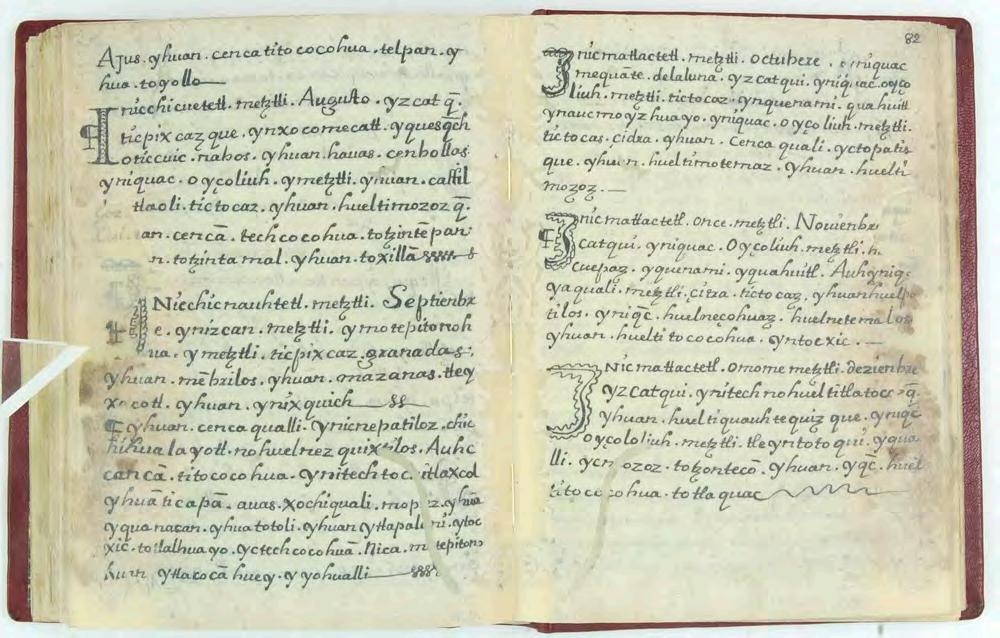 Ajus. yhuan. cenca tito cocohua. telpan. y
hua. toyollo
Inicchicuetetl. metztli. Augusto. yz cat q̄.
ticpix caz que. ynxo comecatl. yquesq̄ch
oticcuic. nabos. yhuan. havas. cenbollas
yniquac. oyçoliuh. ymetztli. yhuan. caxtil
tlaoli. tictocaz. yhuan. huel timozoz q̄.
an. cencā. techcocohua. totzintepan
n. totzintamal. yhuan. toxillā
INicchicnauhtetl. metztli. Septienbr
e. ynizcan. metztli. ymotepitonoh
ua. ymetztli. ticpixcaz. granadas.
yhuan. mēbrilos. yhuan. mazanas. tley
xocotl. yhuan. ynixquich
yhuan. cenca qualli. ynicnepatiloz. chic
hihualayotl. nohuelnez quixtilos. Auhc
cancā. titocochua. ynitech toc. itlaxcol
yhuā ticapā. auas. xochiquali. mop z. yhuā
yquanacan. yhuatotoli. yhuan ytlapal ni. ytoc
xic. totlalhuayo. yctechcocohuā. Nica. m tepitono
ytlacocā huey. yyohualli
82
Inicmatlactetl. metztli. octubere. yniquac
mequate. delaluna. yzcatqui. yniquac. oyço
liuh. metztli. tictocaz. ynquenami. quahuitl
ynaucmoyzhuayo. yniquac. oyçoliuh. metztli.
tictocas. cidra. yhuan. Cenca quali. yctopatis
que. yhuan. hueltimotemaz. yhuan. huelti
mozoz.
Inicmatlactetl. once. metztli. Nouienbr
catqui. yniquac. Oyçoliuh. metztli.
cuepaz. yquenami. yquahuitl. Auhyniq
yaquali. metztli. citra. tictocaz. yhuanhuelp
tilos. yniq̄c. huelneçohuaz. huelnetemalos
yhuan. huelti tococohua. yntocxic.
INicmatlactetl. omome metztli. dezienbre
yzcatqui. ynitech nohueltitlatoca q̄.
yhuan. hueltiquauhtequiz que. yniq̄c
oyçololiuh. metztli. tleyntotoqui. yqua
lli. ozoz. totzontecō. yhuan. yq̄c. huel
titococohua. totlaquac